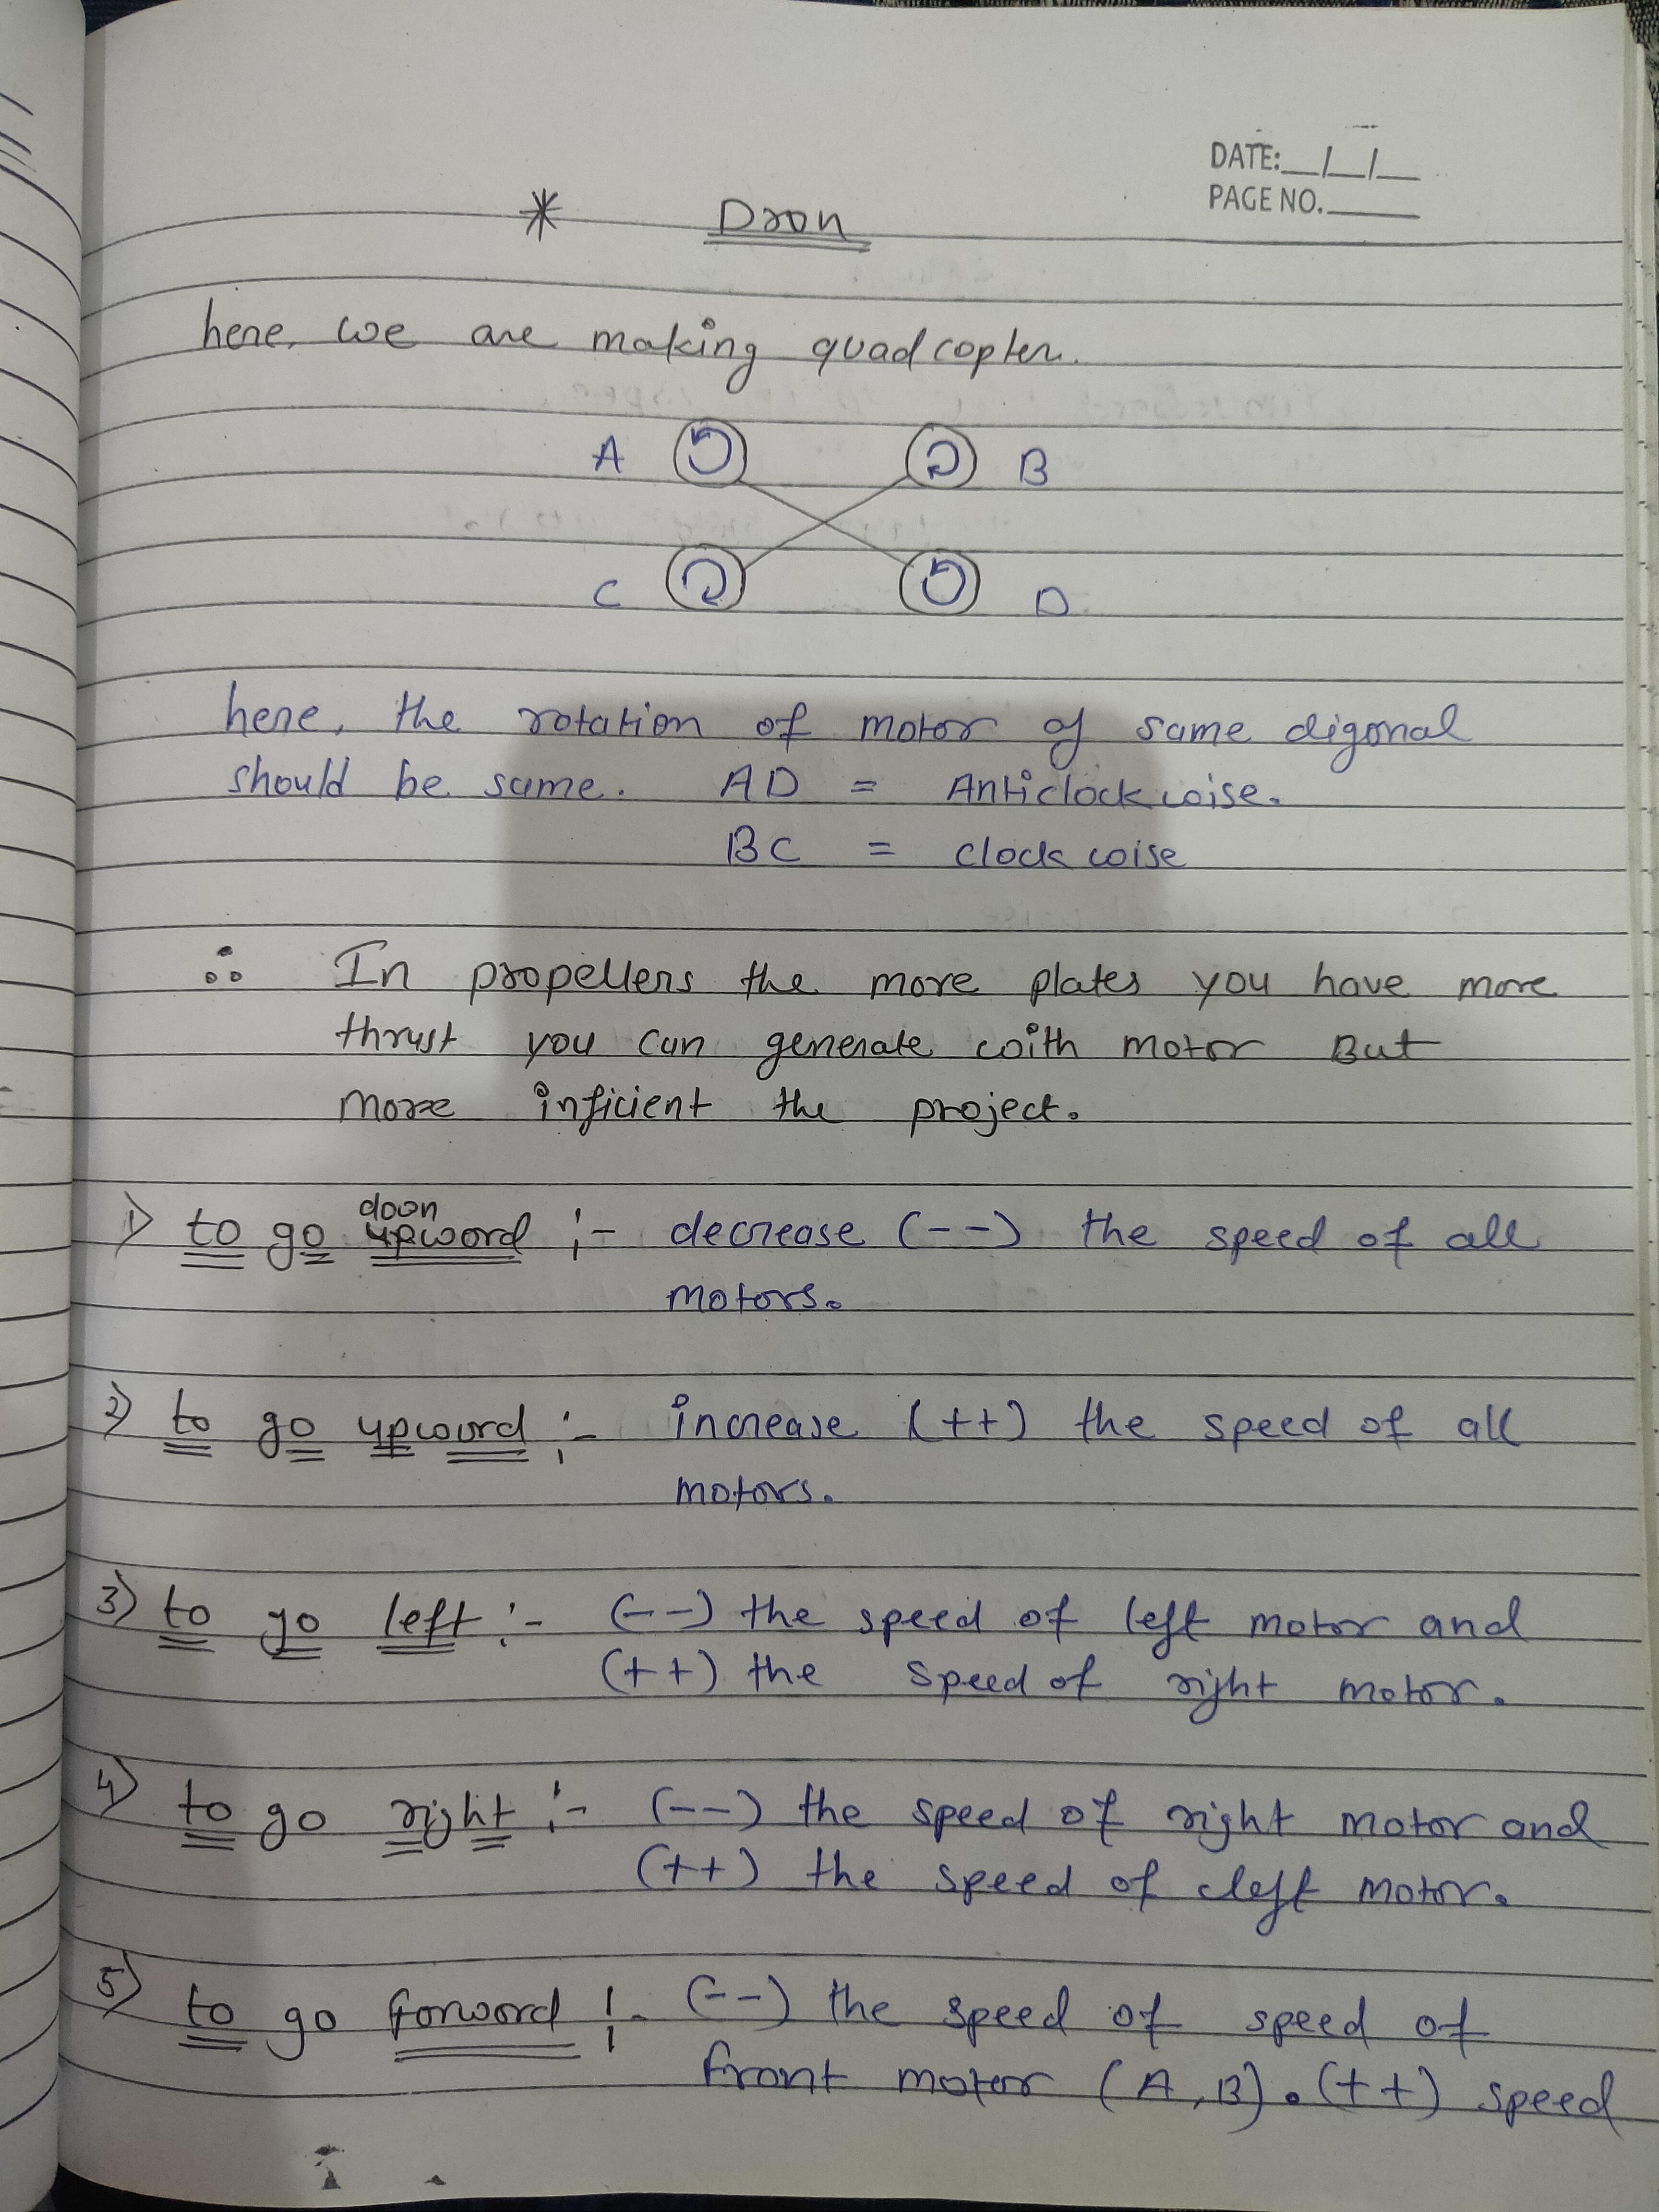 DATE:__/__/__
PAGE NO.____
* Dron
here, we are making quadcopter.
A B
C D
here, the rotation of motor of same digonal
should be same. AD = Anticlockwise.
BC = clockwise
∴ In propellers the more plates you have more
thrust you can generate with motor But
more inficient the project.
1) to go doon upword :- decrease (--) the speed of all
motors.
2) to go upword :- increase (++) the speed of all
motors.
3) to go left :- (--) the speed of left motor and
(++) the speed of right motor.
4) to go right :- (--) the speed of right motor and
(++) the speed of left motor.
5) to go forword :- (--) the speed of speed of
front motor (A,B). (++) speed